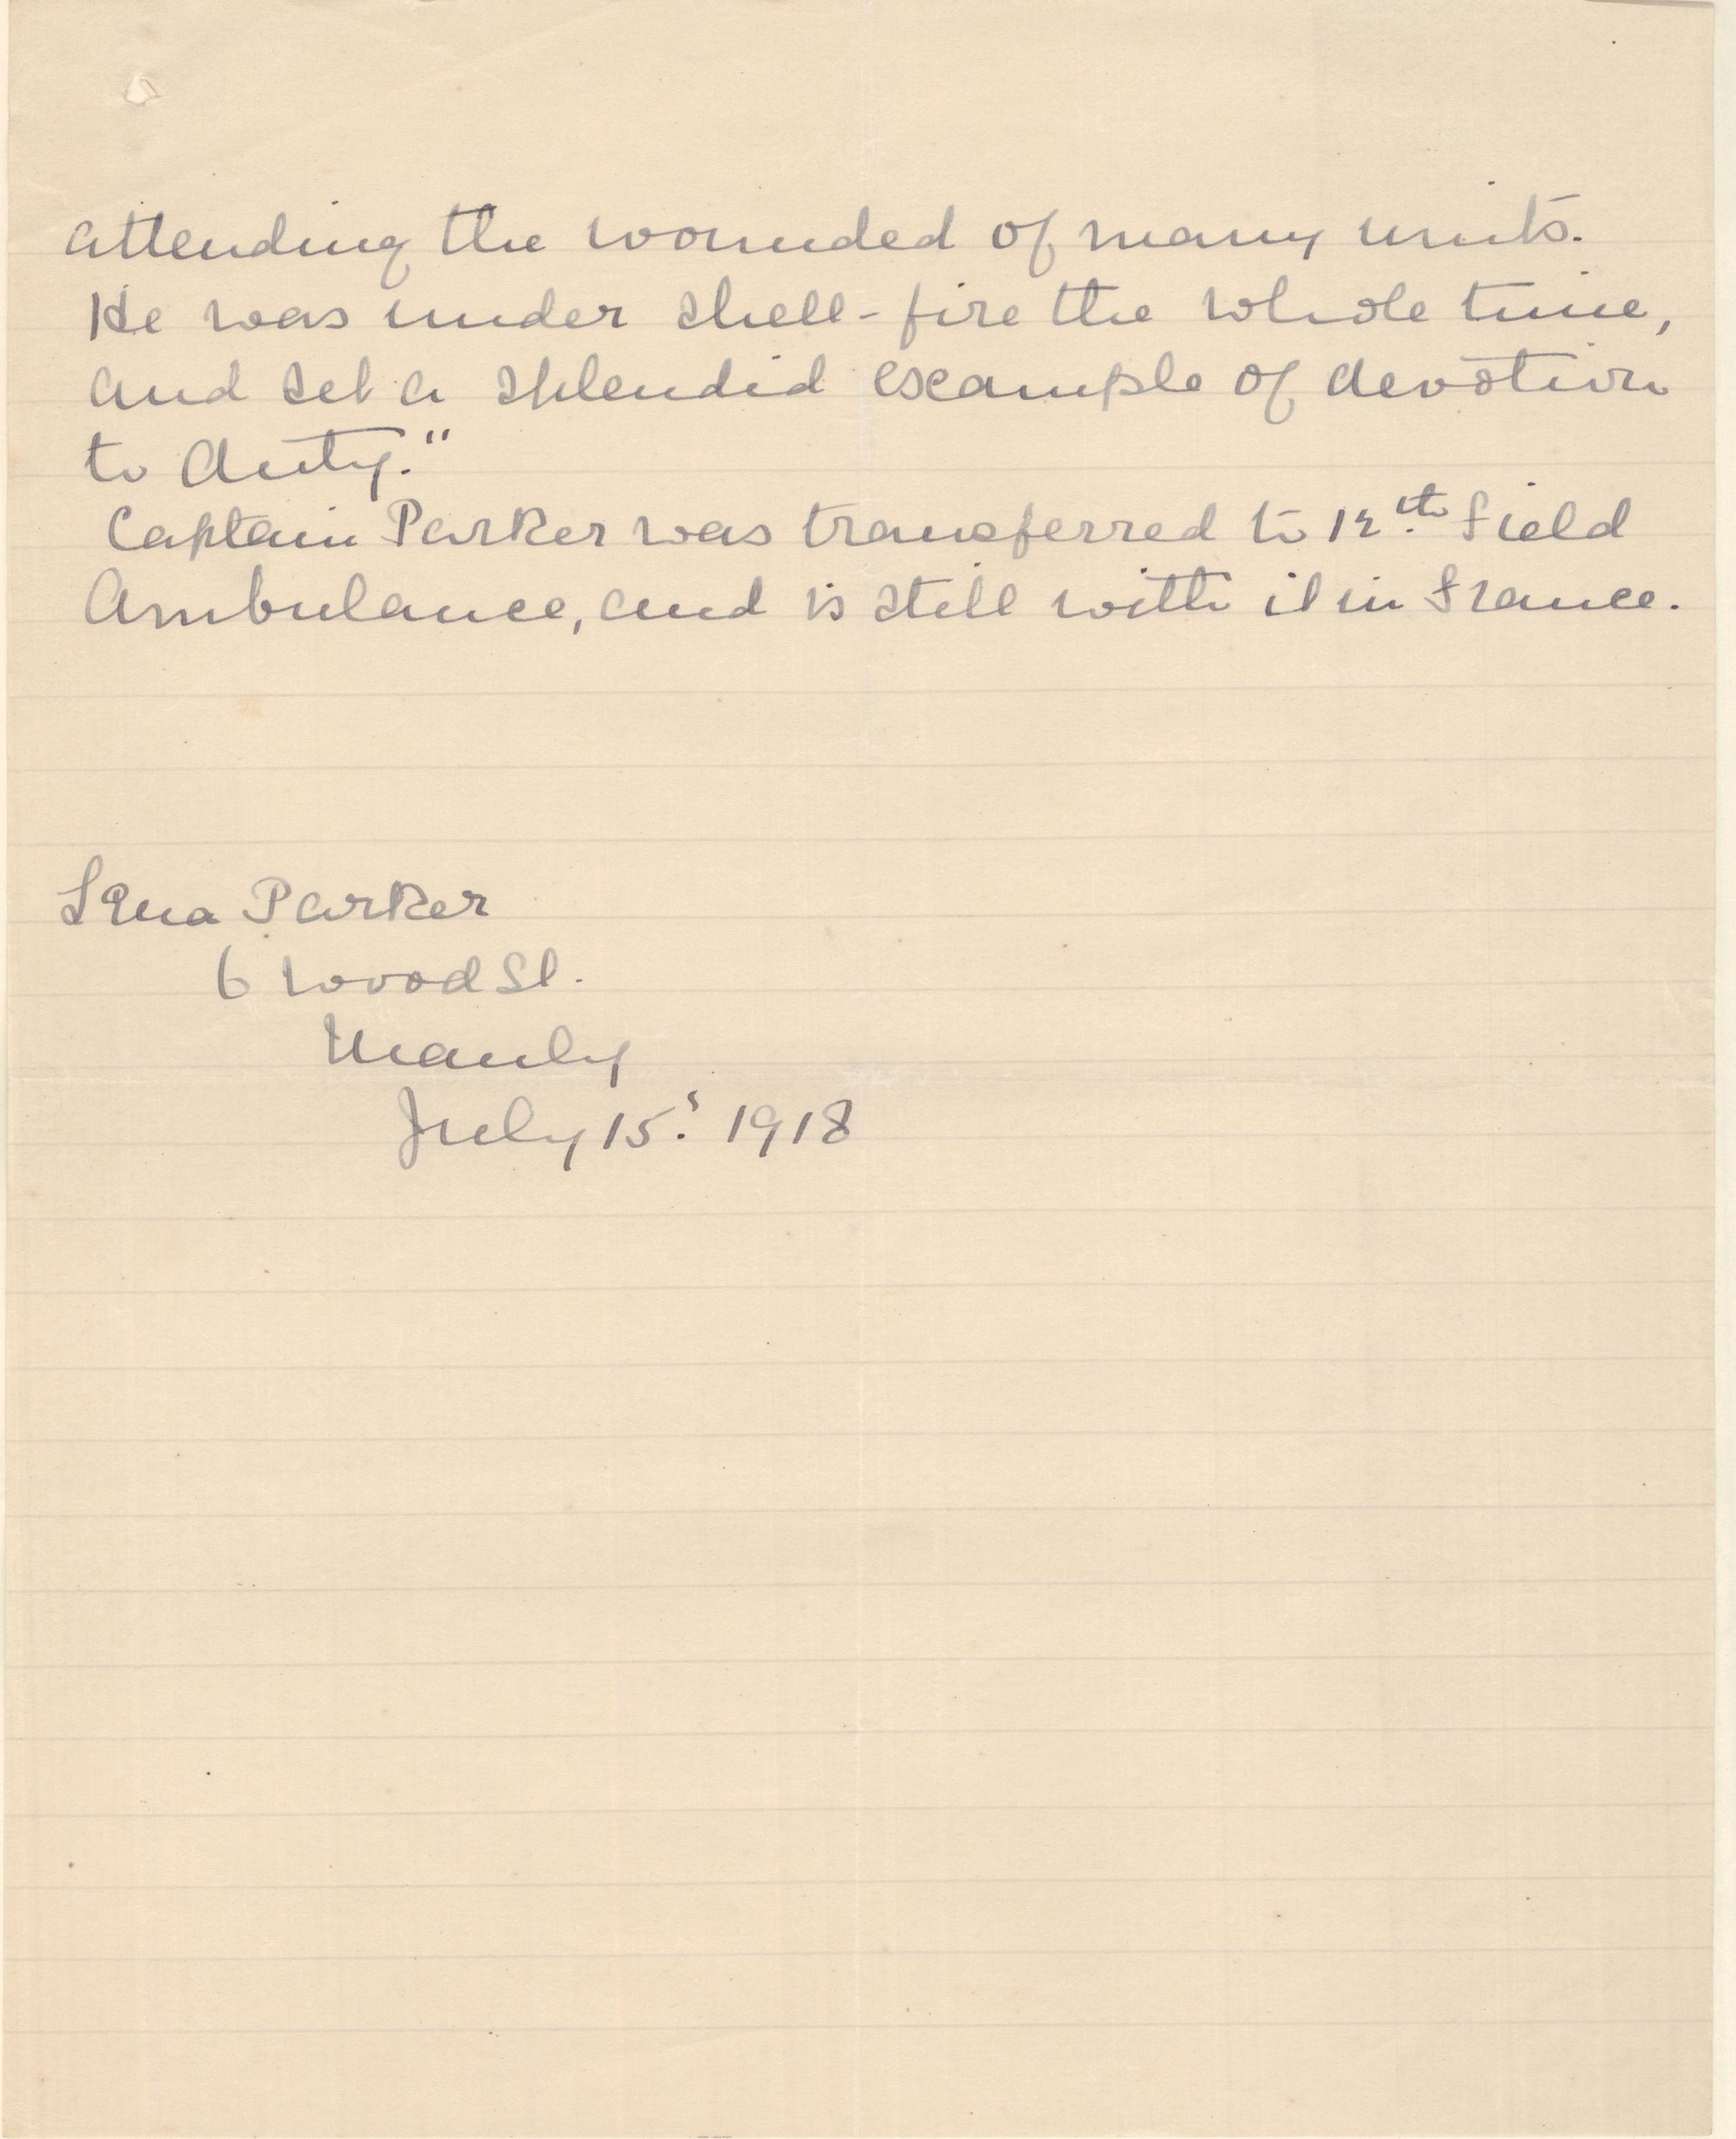 attending the wounded of many units.
He was under shell-fire the whole time,
and set a splendid example of devotion
to duty."
Captain Parker was transferred to 12th Field
Ambulance, and is still with it in France.
Lena Parker
6 Wood St.
Manly
July 15. 1918